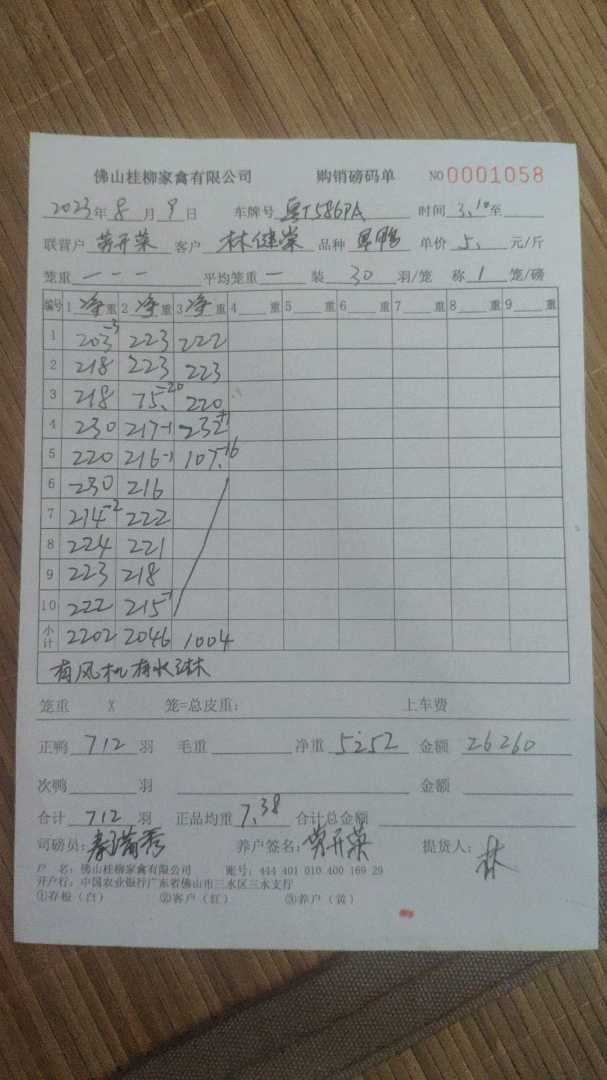 佛山桂柳家禽有限公司 购销磅码单 NO 0001058
2023年 8 月 9 日 车牌号 粤T586PA 时间 3.10至
联营户 劳开菜 客户 林健棠 品种 旱鸭 单价 5. 元/斤
笼重 一 一 一 平均笼重 一 装 30 羽/笼 称 1 笼/磅
编号 1 净 重 2 净 重 3 净 重 4 重 5 重 6 重 7 重 8 重 9 重
1 203-3 223 222
2 218 223 223
3 218 75.-20 220
4 230 217-1 232+1
5 220 216-1 107.-16
6 230 216
7 214-2 222
8 224 221
9 223 218
10 222 215-1
小计 2202 2046 1004
有风机有水淋
笼重 X 笼=总皮重: 上车费
正鸭 712 羽 毛重 净重 5252 金额 26260
次鸭 羽 金额
合计 712 羽 正品均重 7.38 合计总金额
司磅员: 养户签名: 劳开菜 提货人: 林
户 名: 佛山桂柳家禽有限公司 账号: 444 401 010 400 169 29
开户行: 中国农业银行广东省佛山市三水区三水支行
①存根（白） ②客户（红） ③养户（黄）